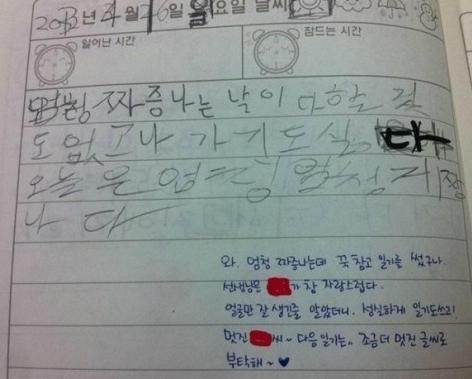 2013년 4월 6일 월요일 날씨
일어난 시간
잠드는 시간
엄청 짜증나는 날이다 할 걸
도 없고 나가기도 싫 다
오늘은 엄청 엄청 짜
나다
와. 엄청 짜증나는데 꾹 참고 일기를 썼구나.
선생님은 가 참 자랑스럽다.
얼굴만 잘 생긴줄 알았더니. 성실하게 일기도쓰고!
멋진 씨~ 다음 일기는.. 조금더 멋진 글씨로
부탁해~♥